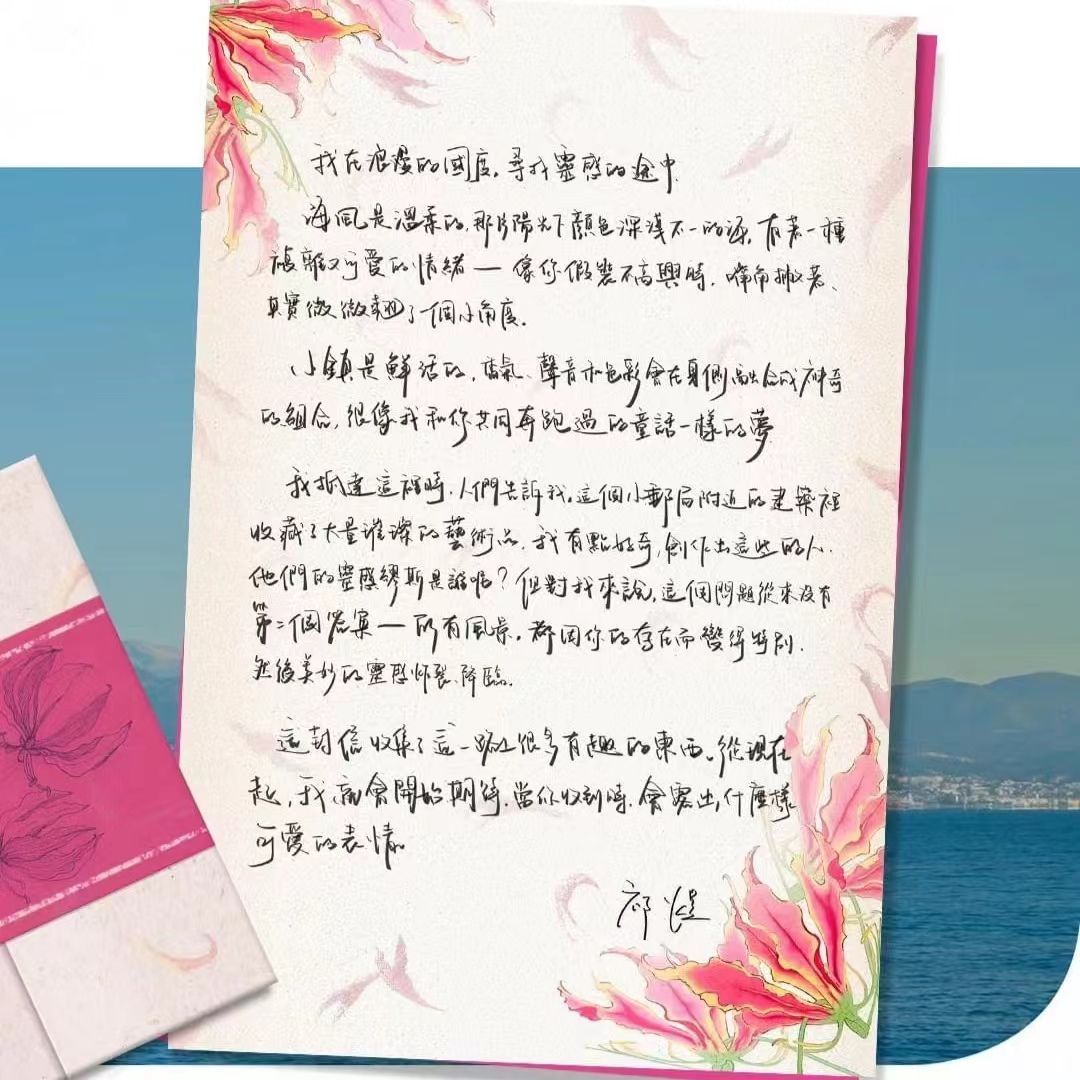 我在浪漫的國度,尋找靈感的途中.
海風是溫柔的,那片陽光下顏色深淺不一的海,有著一種
疏離又可愛的情緒—像你假裝不高興時,嘴角撇著、
其實微微翹了一個小角度.
小鎮是鮮活的,香氣、聲音和色彩會在身側融合成神奇
的組合,很像我和你共同奔跑過的童話一樣的夢
我抵達這裡時,人們告訴我,這個小郵局附近的建築裡
收藏了大量璀璨的藝術品.我有點好奇,創作出這些的人.
他們的靈感繆斯是誰呢?但對我來說,這個問題從來沒有
第二個答案—所有風景,都因你的存在而變得特別.
然後美妙的靈感炸裂、降臨.
這封信收集了這一路上很多有趣的東西。從現在
起,我就會開始期待,當你收到時,會露出什麼樣
可愛的表情。
祁煜